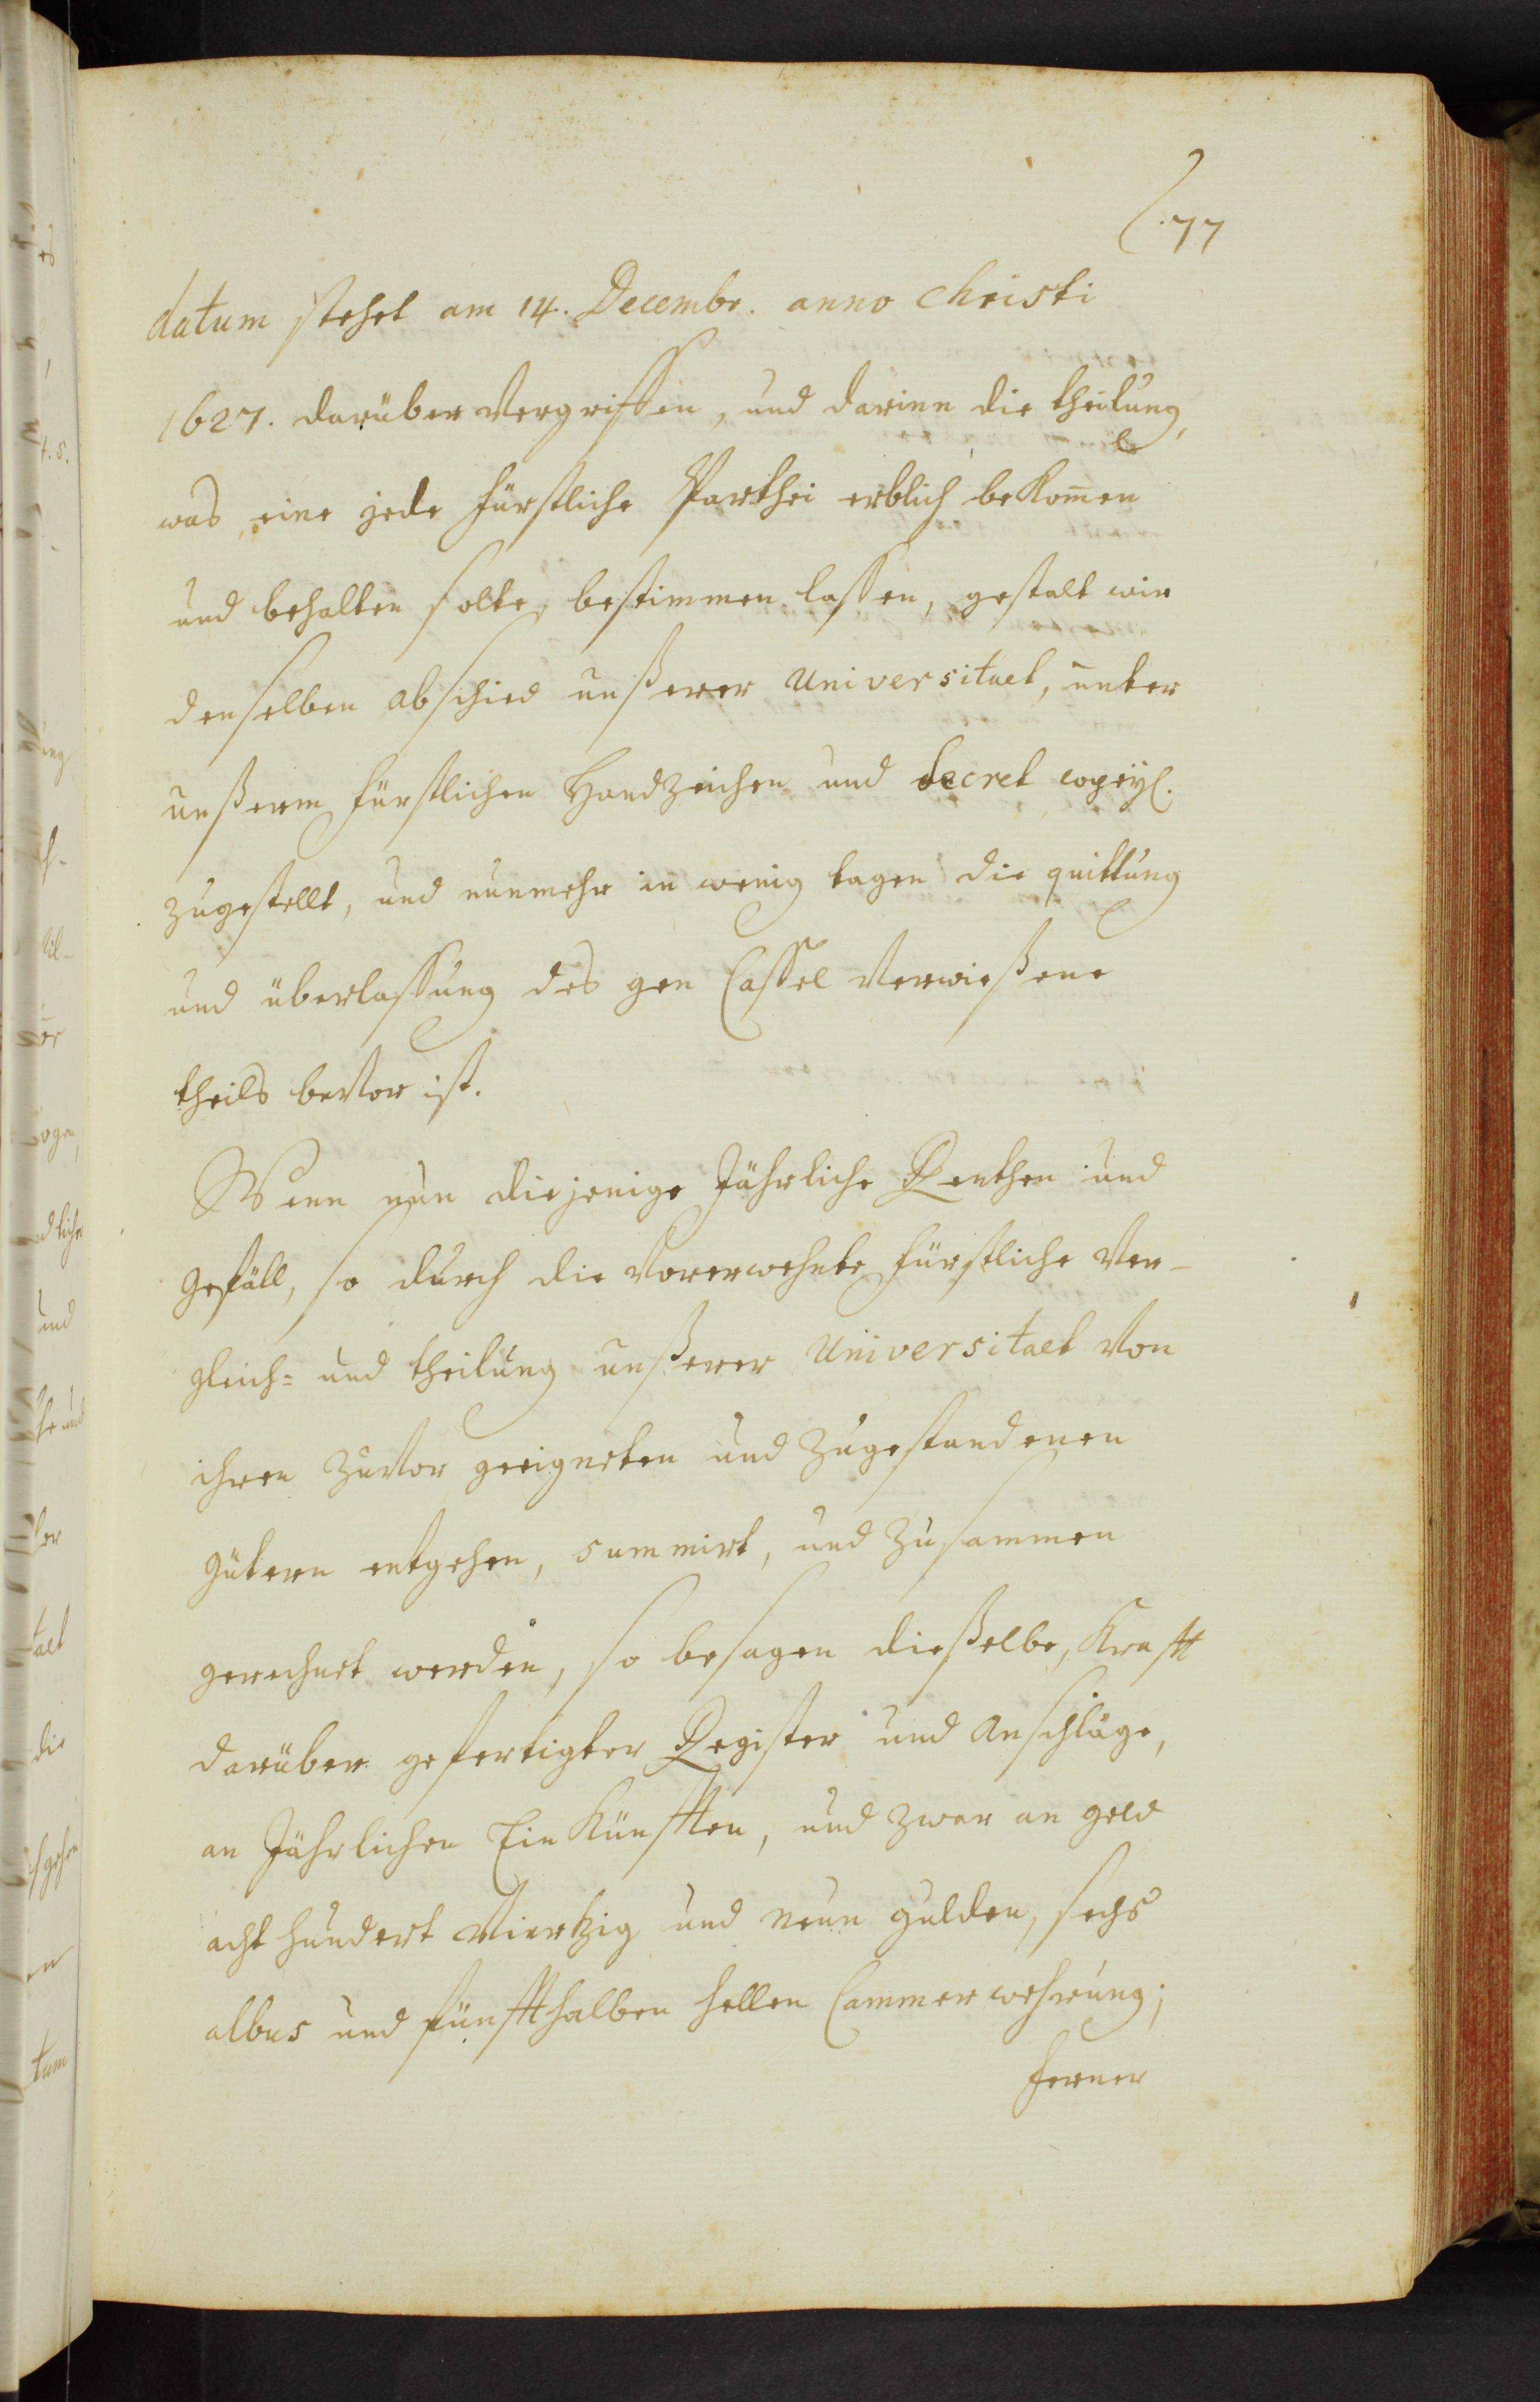 77
datum stehet am 14. Decembr. anno Christi
1627. darüber vergriffen, und darinn die theilung,
was eine jede fürstliche Parthei erblich bekom̄en
und behalten solte, bestimmen lassen, gestalt wir
denselben abschied unßerer Universitaet, unter
unßerm fürstlichen Handzeichen und Secret copeyl.
zugestellt, und nunmehr in wenig tagen die quittung
und überlassung des gen Cassel verwießene
theils bevor ist.
Wenn nun diejenige Jährliche Renthen und
gefäll, so durch die vorerwehnte fürstliche Ver-
gleich= und theilung unßerer Universitaet von
ihren zuvor geeigneten und zugestandenen
gütern entgehen, summirt, und zusammen
gerechnet werden, so besagen dießelbe, Krafft
darüber gefertigter Register und Anschläge,
an Jährlichen Einkünfften, und zwar an geld
acht hundert viertzig und neun gulden, sechs
albus und fünffthalben heller Cammerwehrung;
ferner